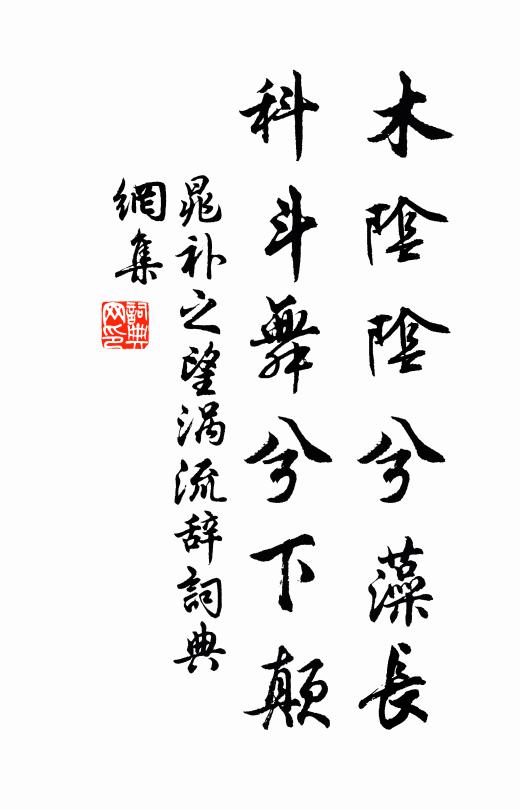 木陰陰兮藻長
科斗舞兮下顛
晁补之望涡流辞詞典
網集
詞典
网印